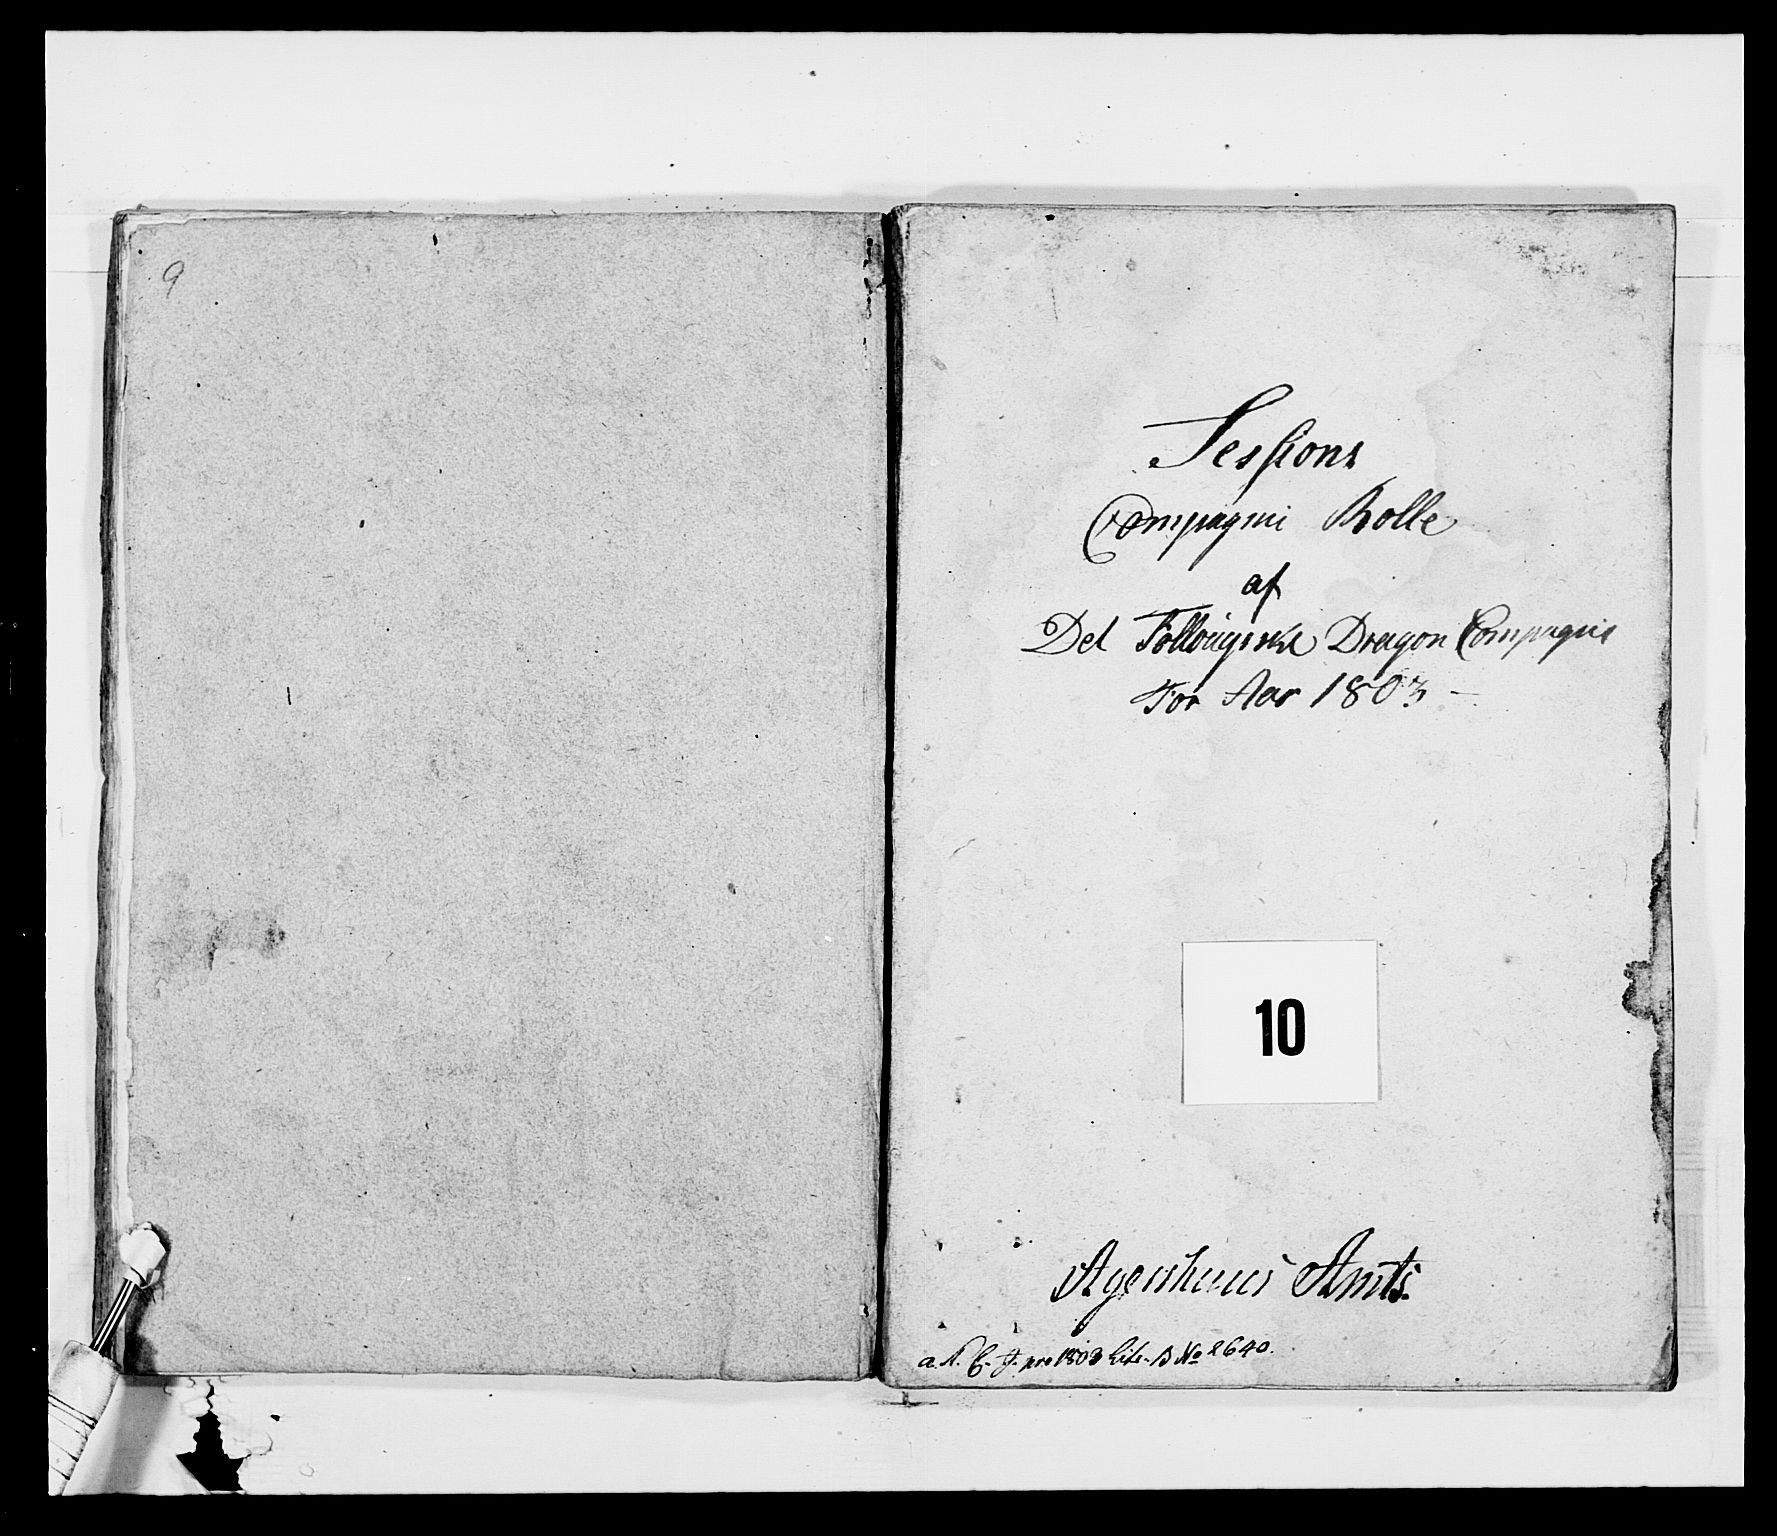 9
Sessions
Compagni Rolle
af
Det Follougske Dragon Compagnie
For Aar 1803 –
10
Agershuus Amts.
a. N. C. J. pro 1803 Litr. B No 2640.